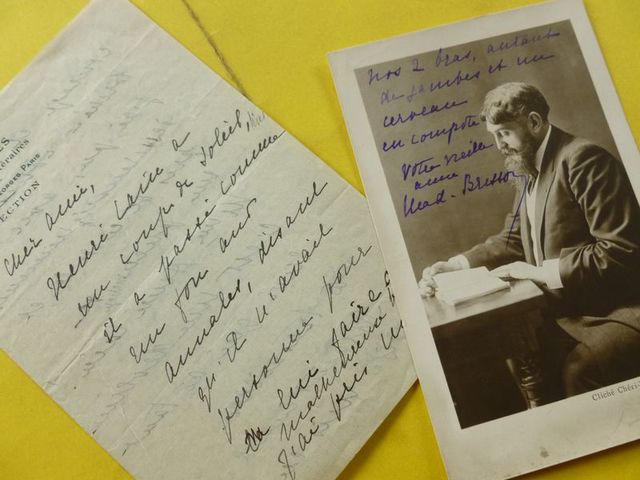 ES
ttéraires
Georges Paris
ECTION
Cher ami,
Henri Cain a
un coup de Soleil,
il a passé comme
un fou aux
annales, disant
qu'il n'avait
personne pour
lui faire
malheureuse
j'ai pris
Nos 2 bras, autant
de jambes et un
cerveau
en compote
Votre vieille
amie
Mad. Brisson
Cliché Chéri-